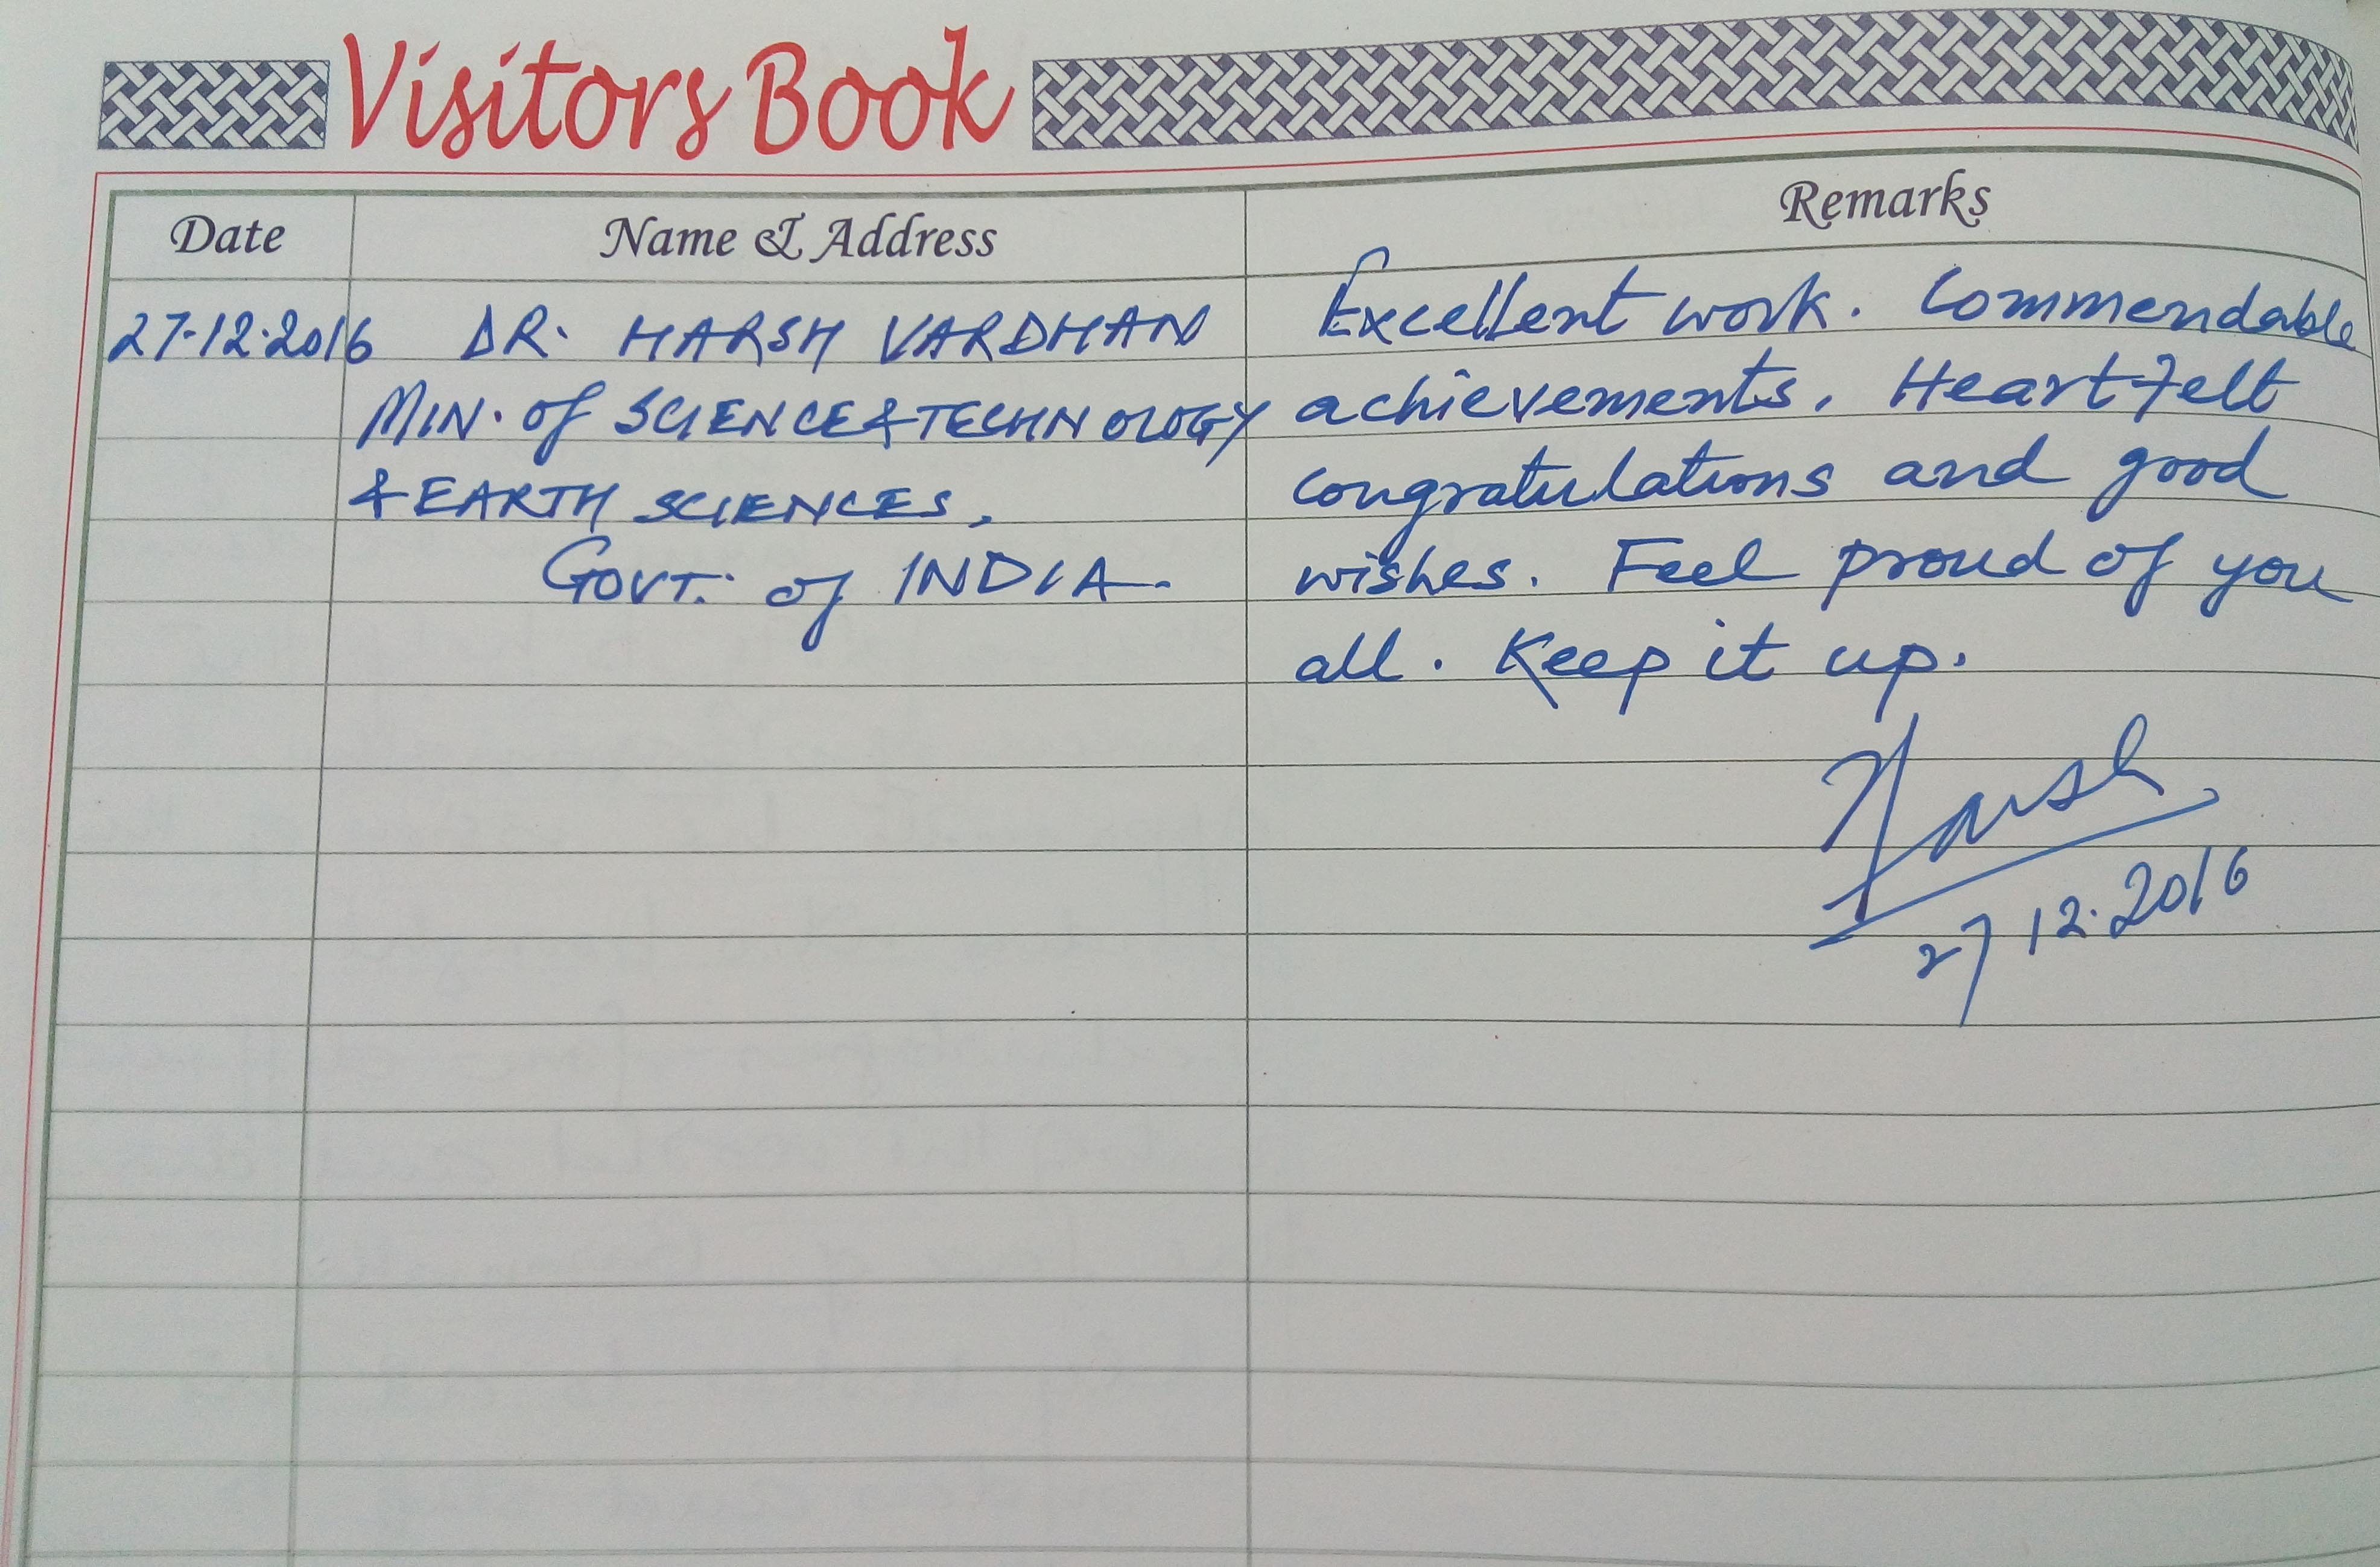 Visitors Book
Date Name & Address Remarks
27-12-2016 DR. HARSH VARDHAN Excellent work. Commendable
MIN. of SCIENCE & TECHNOLOGY achievements. Heartfelt
& EARTH SCIENCES, congratulations and good
GOVT. of INDIA. wishes. Feel proud of you
all. Keep it up.
Harsh
27 12.2016